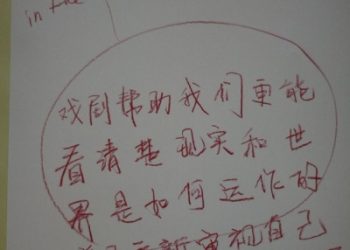 in the
戏剧帮助我们更能
看请楚现实和世
界是如何运作的
新审视自己